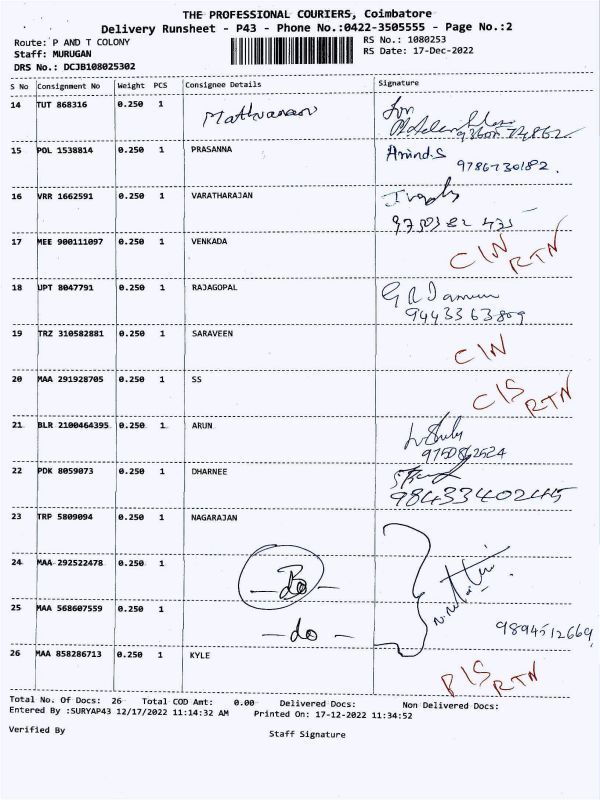 THE PROFESSIONAL COURIERS, Coimbatore
Delivery Runsheet - P43 - Phone No.:0422-3505555 - Page No.:2
Route: P AND T COLONY
RS No.: 1080253
Staff: MURUGAN
RS Date: 17-Dec-2022
DRS No.: DCJB108025302
S No Consignment No Weight PCS Consignee Details Signature
14 TUT 868316 0.250 1
15 POL 1538814 0.250 1 PRASANNA Anind.S
9786730182.
16 VRR 1662591 0.250 1 VARATHARAJAN
9750382 435
17 MEE 900111097 0.250 1 VENKADA C/N RTN
18 UPT 8047791 0.250 1 RAJAGOPAL
9443363809
19 TRZ 310582881 0.250 1 SARAVEEN C/N
20 MAA 291928705 0.250 1 SS C/S RTN
21 BLR 2100464395 0.250 1 ARUN
9750862524
22 PDK 8059073 0.250 1 DHARNEE
9843340245
23 TRP 5809094 0.250 1 NAGARAJAN
24 MAA 292522478 0.250 1 - Do -
25 MAA 568607559 0.250 1 - do -
9894512669
26 MAA 858286713 0.250 1 KYLE P/S RTN
Total No. Of Docs: 26 Total COD Amt: 0.00 Delivered Docs: Non Delivered Docs:
Entered By :SURYAP43 12/17/2022 11:14:32 AM Printed On: 17-12-2022 11:34:52
Verified By
Staff Signature